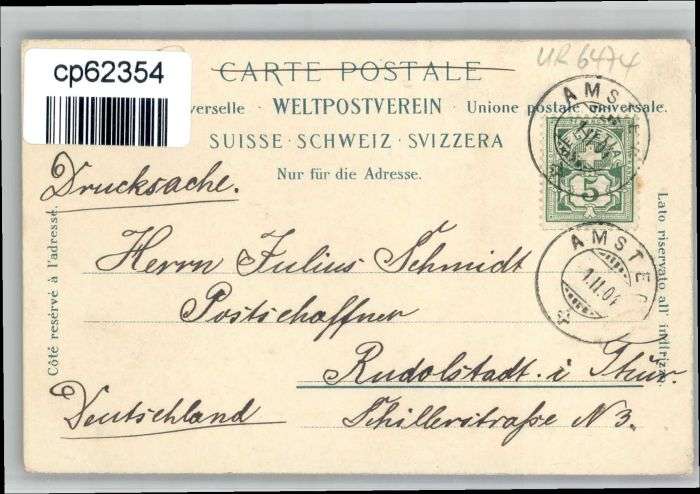 UR 6474
cp62354
CARTE POSTALE
verselle · WELTPOSTVEREIN · Unione postale universale.
SUISSE · SCHWEIZ · SVIZZERA
Nur für die Adresse.
AMS
5
AMSTEG
1.II.04
Drucksache.
Herrn Julius Schmidt
Postschaffner
Rudolstadt i. Thür.
Deutschland Schillerstraße N 3.
Côté reservé à l'adresse.
Lato riservato all' indirizzo.